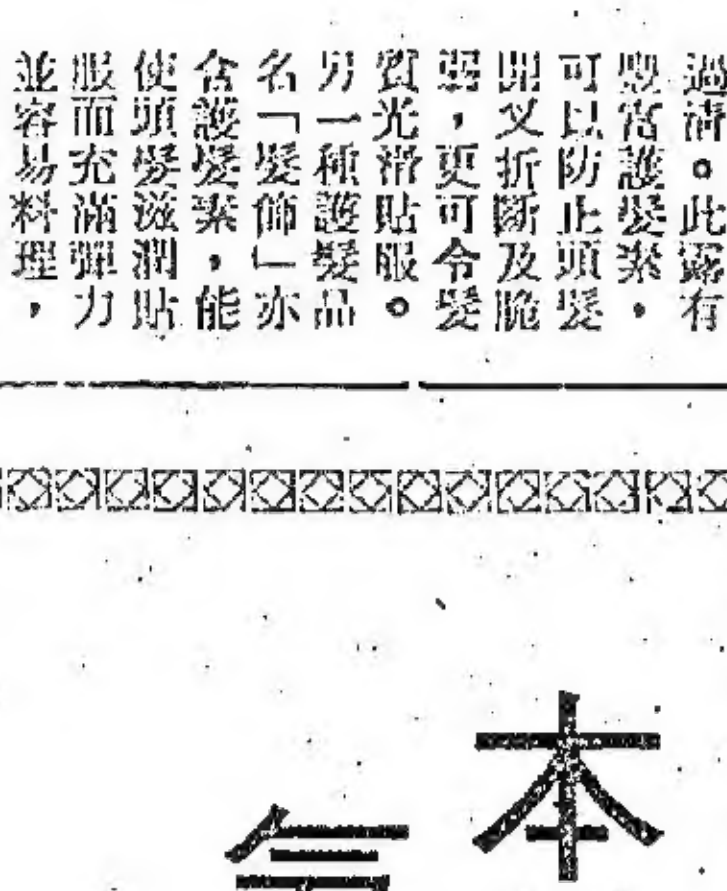 過清。此露有
豐富護髮素，
可以防止頭髮
開叉折斷及脆
弱，更可令髮
質光滑貼服。
另一種護髮品
名「髮飾」亦
含護髮素，能
使頭髮滋潤貼
服而充滿彈力
並容易料理，
本